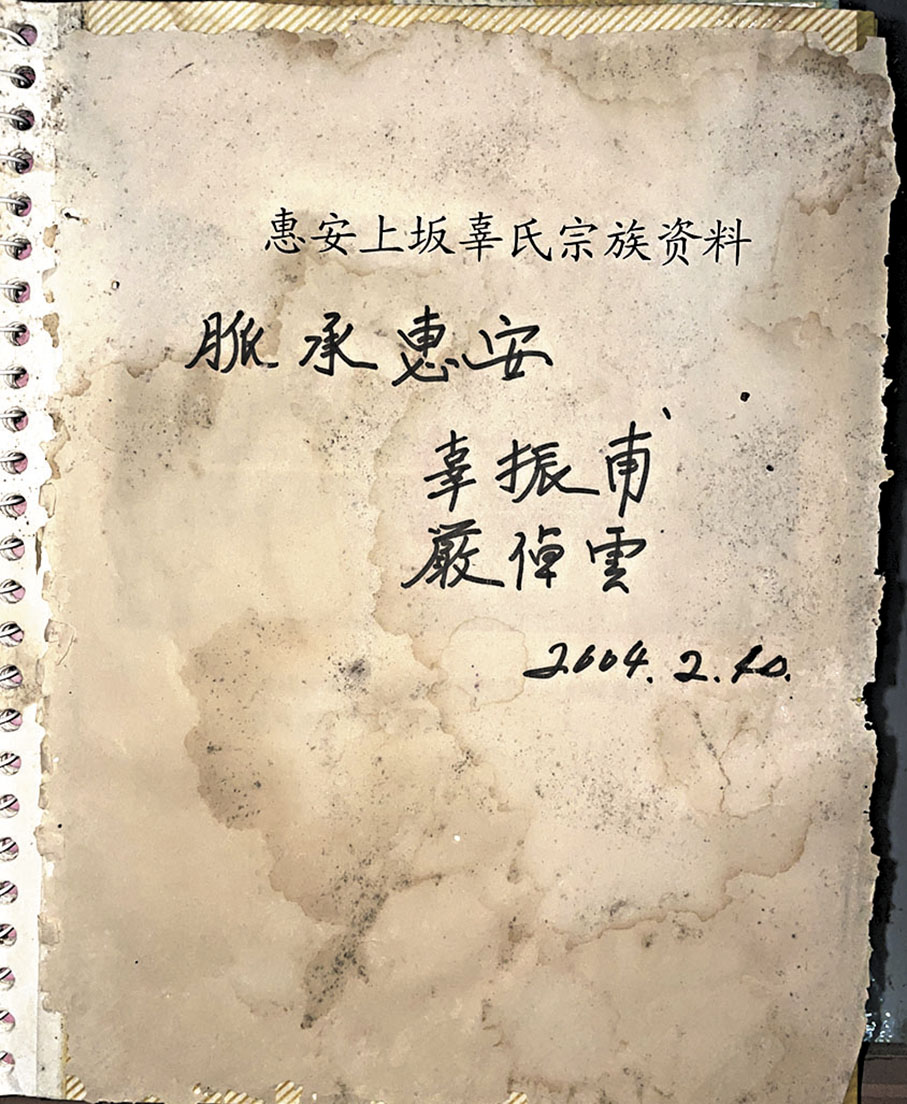 惠安上坂辜氏宗族资料
脈承惠安
辜振甫
嚴倬雲
2004.2.10.